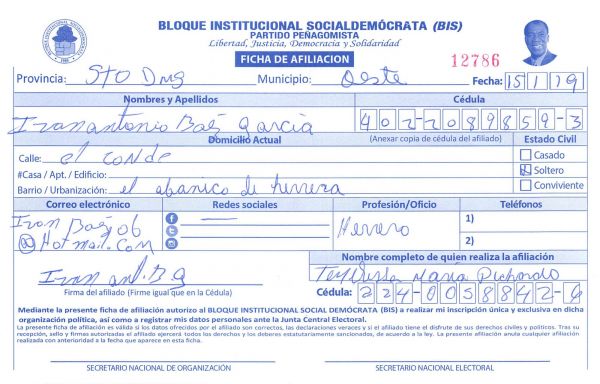 BLOQUE INSTITUCIONAL SOCIALDEMÓCRATA (BIS)
PARTIDO PEÑAGOMISTA
Libertad, Justicia, Democracia y Solidaridad
FICHA DE AFILIACION
12786
Provincia: Sto Dmg Municipio: Oeste Fecha: 15/1/19
Nombres y Apellidos Cédula
Ivan antonio Baéz garcia 402-2089859-3
Domicilio Actual (Anexar copia de cédula del afiliado) Estado Civil
Calle: el conde Casado
#Casa / Apt. / Edificio: Soltero
Barrio / Urbanización: el abanico de herrera Conviviente
Correo electrónico Redes sociales Profesión/Oficio Teléfonos
Ivan Baéz 06 Herrero 1)
@Hotmail.com 2)
Nombre completo de quien realiza la afiliación
Ivan ant. B g María Pichardo
Firma del afiliado (Firme igual que en la Cédula) Cédula: 224-0058842-6
Mediante la presente ficha de afiliación autorizo al BLOQUE INSTITUCIONAL SOCIAL DEMÓCRATA (BIS) a realizar mi inscripción única y exclusiva en dicha
organización política, así como a registrar mis datos personales ante la Junta Central Electoral.
La presente ficha de afiliación es válida si los datos ofrecidos por el afiliado son correctos, las declaraciones veraces y si el afiliado tiene el disfrute de sus derechos civiles y políticos. Tras su
recepción, sello y firmas autorizadas el afiliado ejercerá todos los derechos y los deberes estatutariamente sancionados, de acuerdo a la ley. La presente afiliación anula cualquier afiliación
realizada con anterioridad a la fecha que aparece en esta ficha.
SECRETARIO NACIONAL DE ORGANIZACIÓN SECRETARIO NACIONAL ELECTORAL